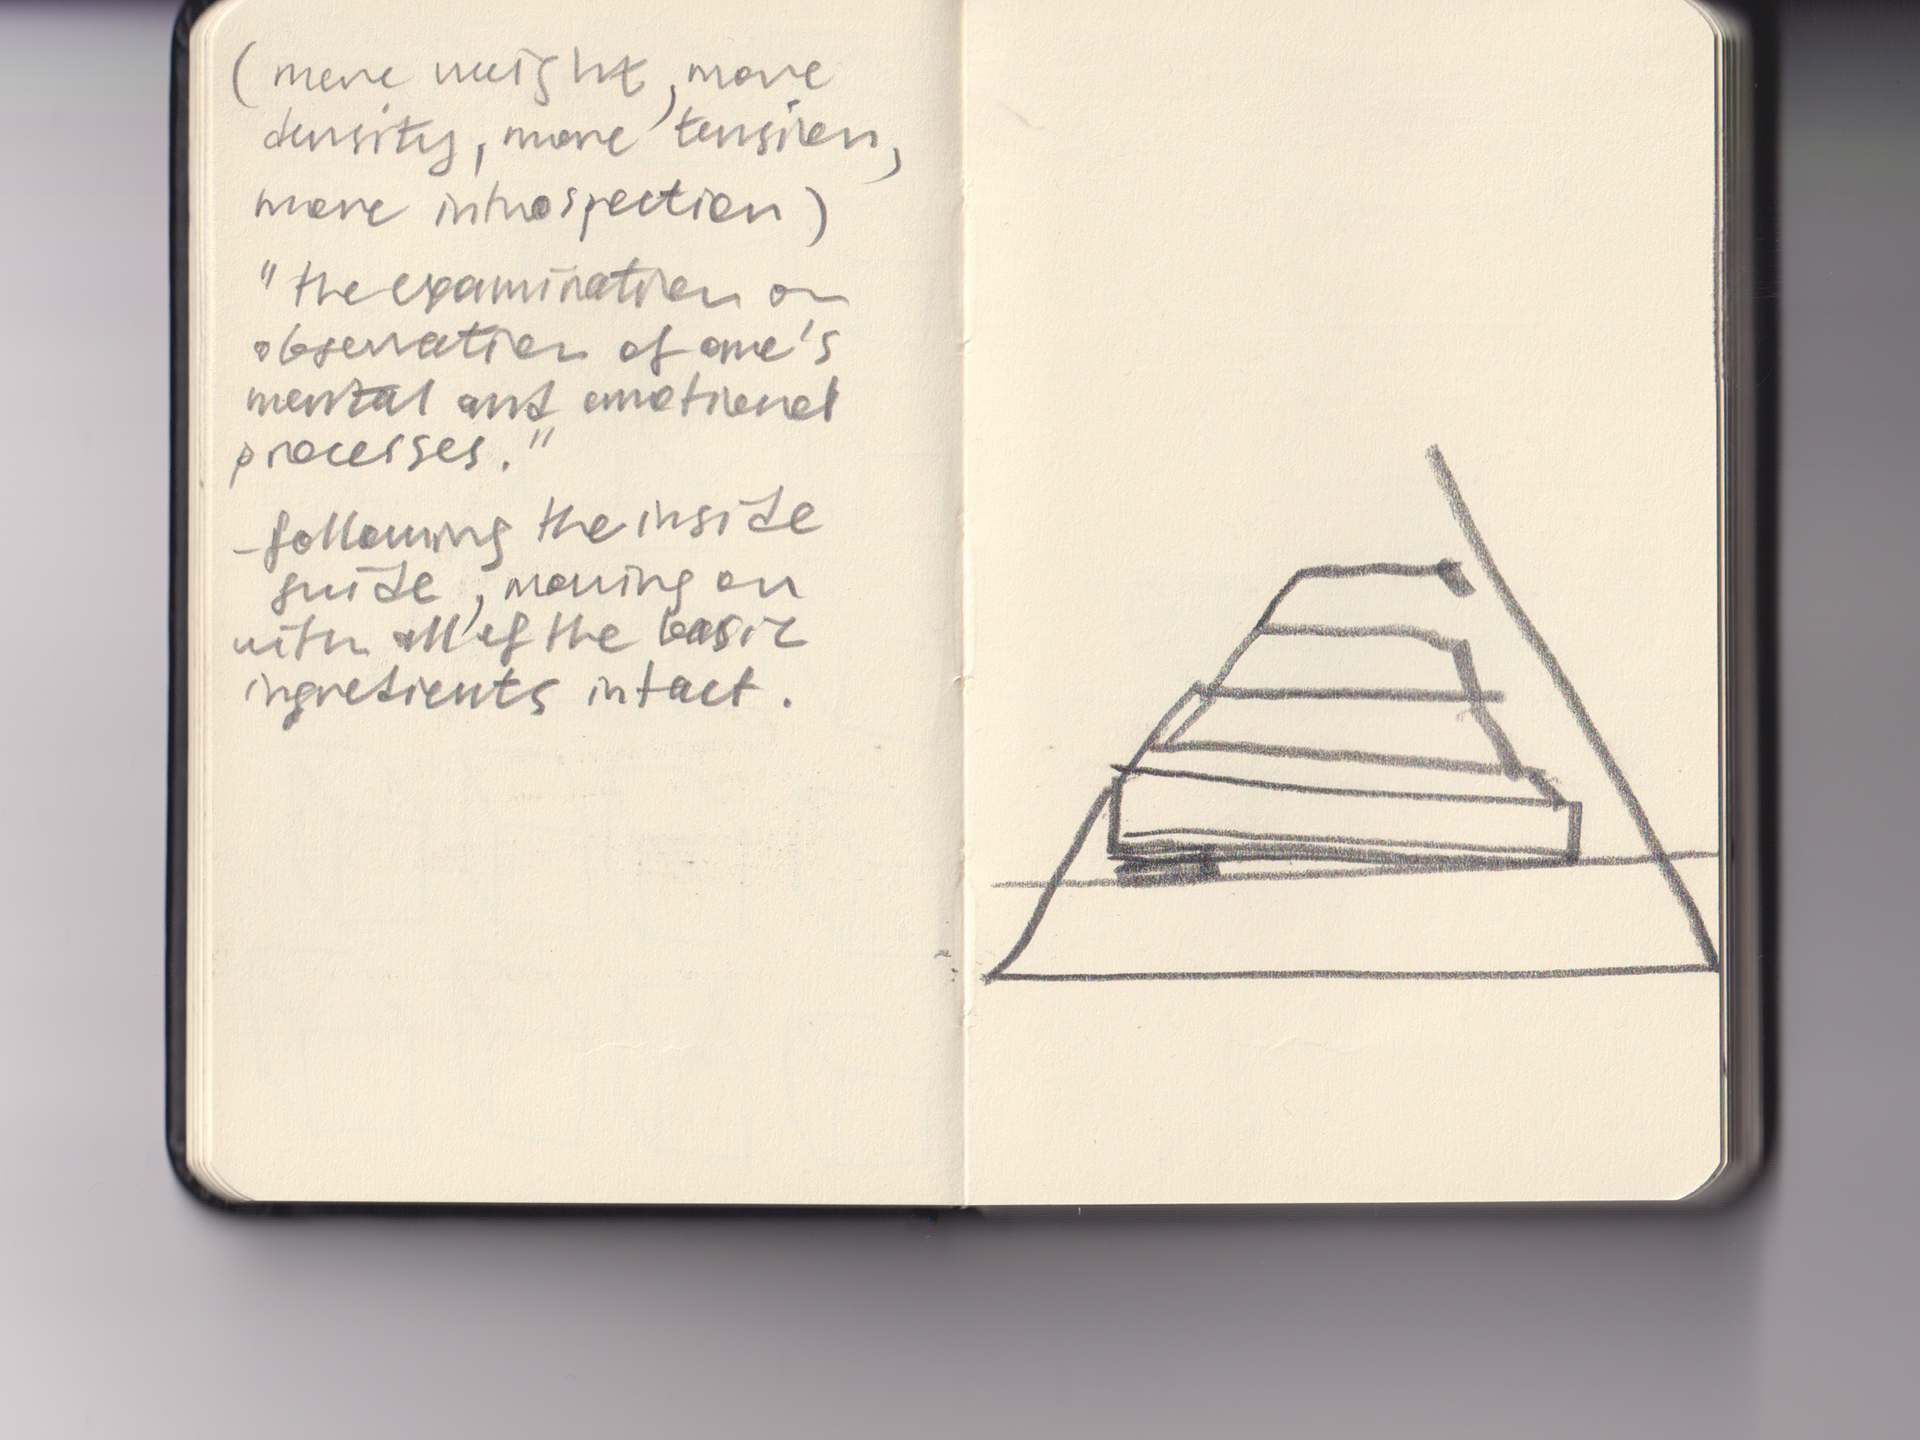 (more weight, more
density, more tension,
more introspection)
"the examination or
observation of one's
mental and emotional
processes."
-following the inside
guide, moving on
with all of the basic
ingredients intact.